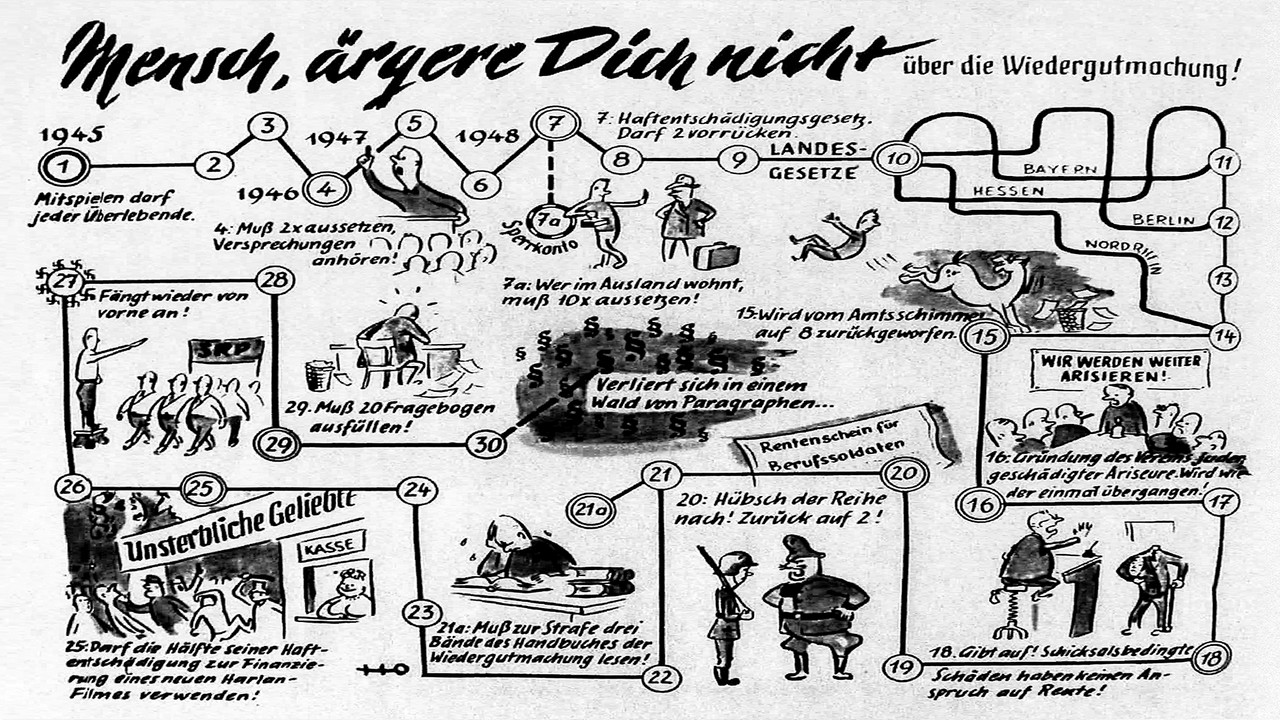 Mensch, ärgere Dich nicht über die Wiedergutmachung!
1945
1
2
3
1946
4
1947
5
6
1948
7
7a
Sperrkonto
8
9
LANDES-
GESETZE
10
BAYERN
HESSEN
BERLIN
NORDRHEIN
11
12
13
14
Mitspielen darf
jeder Überlebende.
4: Muß 2x aussetzen,
Versprechungen
anhören!
7: Haftentschädigungsgesetz.
Darf 2 vorrücken.
7a: Wer im Ausland wohnt,
muß 10x aussetzen!
15: Wird vom Amtsschimmel
auf 8 zurückgeworfen.
15
WIR WERDEN WEITER
ARISIEREN!
16: Gründung des Vereins
geschädigter Ariseure. Wird wie-
der einmal übergangen!
16
17
27
28
Fängt wieder von
vorne an!
SRP
29. Muß 20 Fragebogen
ausfüllen!
29
30
§ § § § § § § § § § § § § § § § § §
Verliert sich in einem
Wald von Paragraphen...
Rentenschein für
Berufssoldaten
26
25
24
Unsterbliche Geliebte
KASSE
21a
21
20
20: Hübsch der Reihe
nach! Zurück auf 2!
23
25: Darf die Hälfte seiner Haft-
entschädigung zur Finanzie-
rung eines neuen Harlan-
Filmes verwenden!
21a: Muß zur Strafe drei
Bände des Handbuches der
Wiedergutmachung lesen!
22
19
18
18. Gibt auf! Schicksalsbedingte
Schäden haben keinen An-
spruch auf Rente!